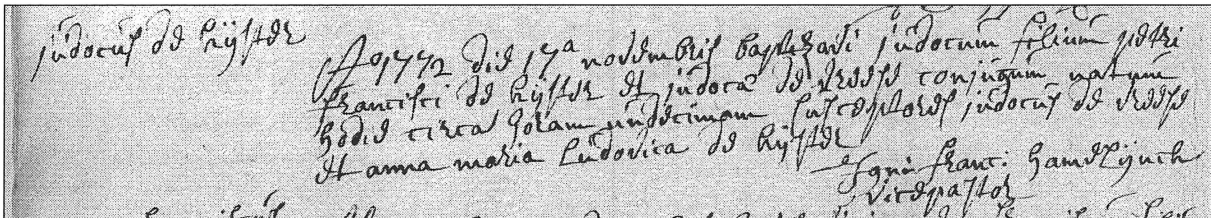 judocus de kÿster
A° 1772 die 17a novembris baptizavi judocum filium petri
francisci de kÿster et judocæ de vreese conjugum natum
hodie circa horam undecimam susceptores judocus de vreese
et anna maria ludovica de kÿster
Igni: franci: hamelÿnck
vicepastor